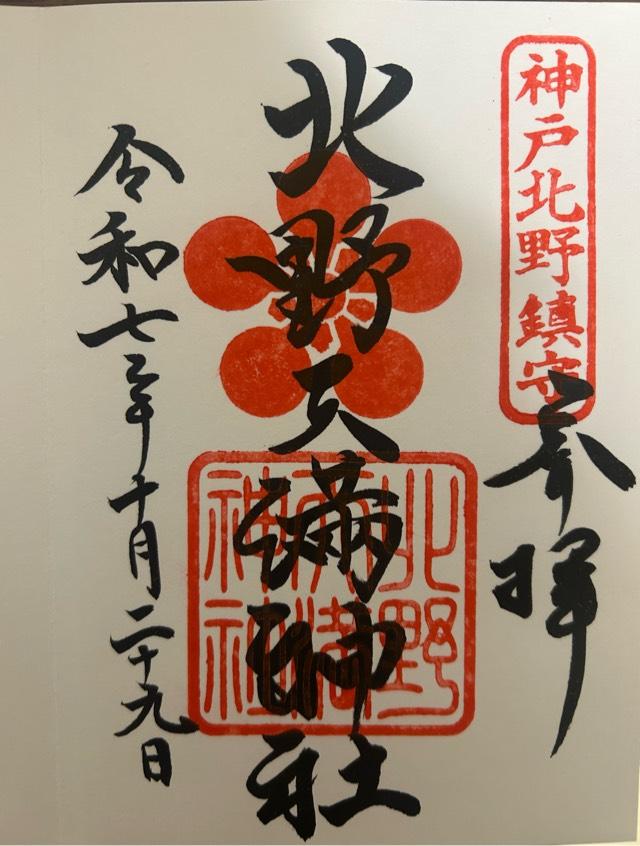 神戸北野鎮守
奉拝
北野天満神社
北野天満神社
令和七年十月二十九日